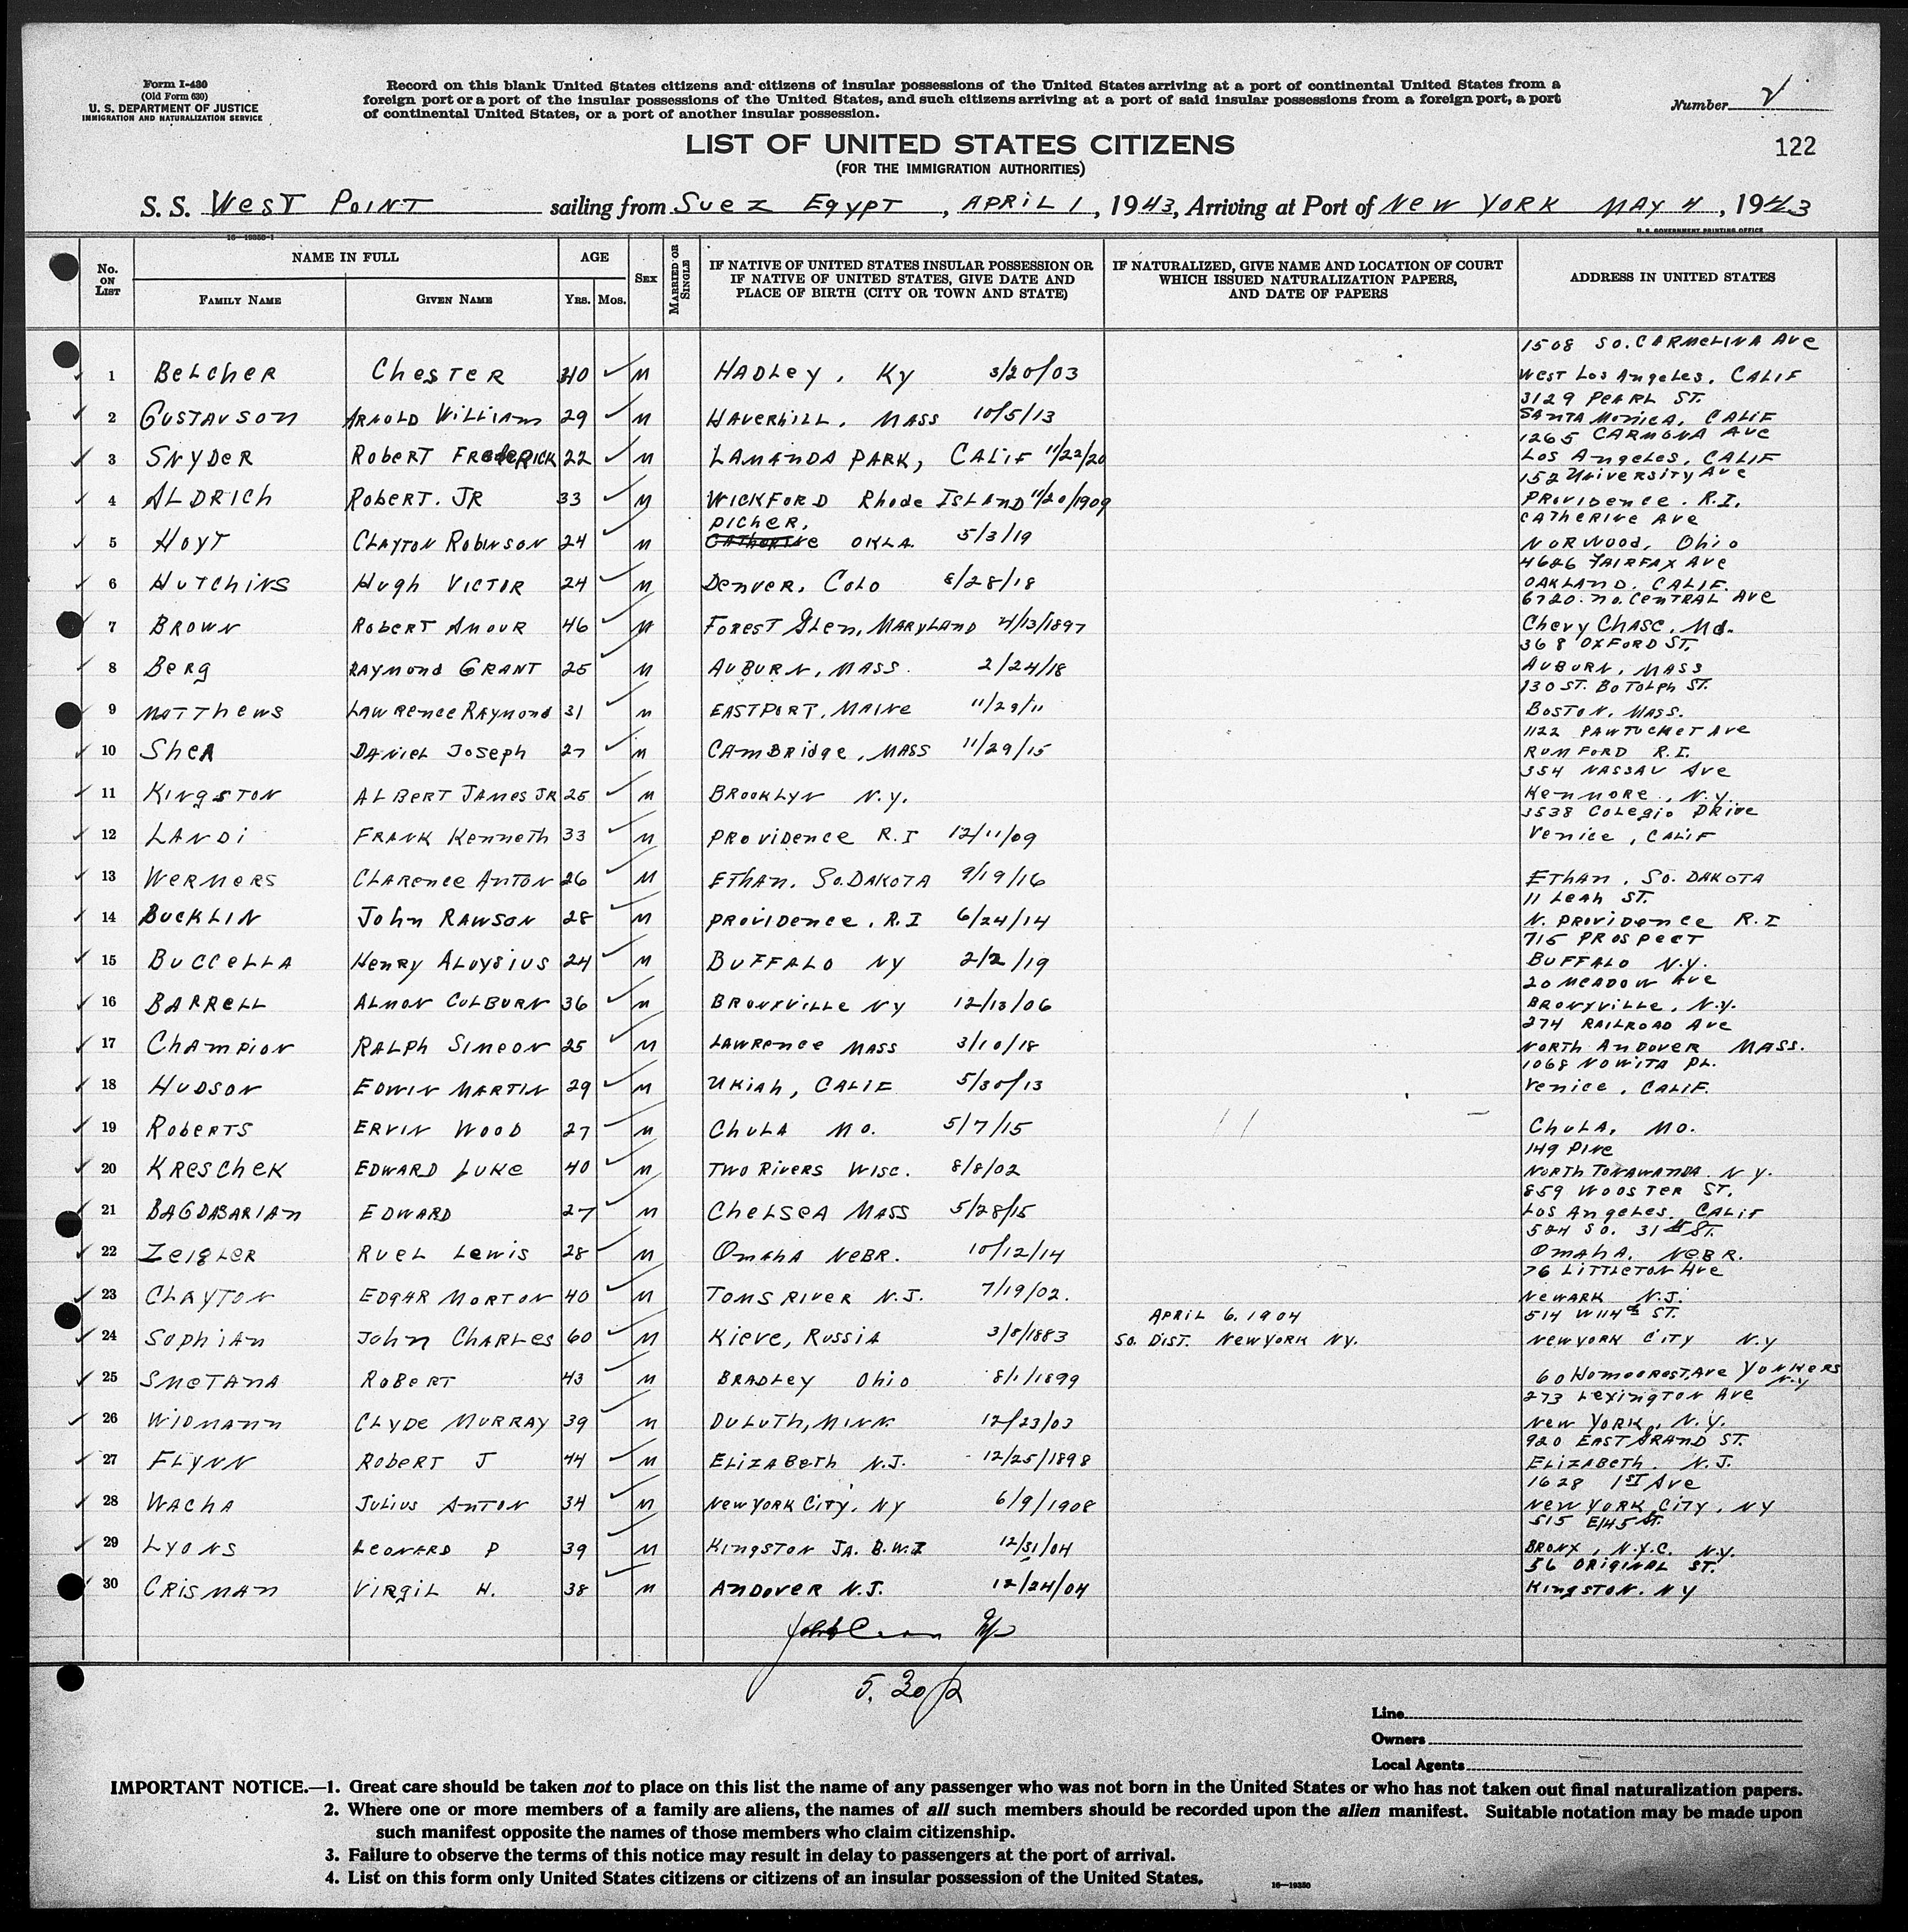 Form I-430
(Old Form 630)
U. S. DEPARTMENT OF JUSTICE
IMMIGRATION AND NATURALIZATION SERVICE
Record on this blank United States citizens and citizens of insular possessions of the United States arriving at a port of continental United States from a
foreign port or a port of the insular possessions of the United States, and such citizens arriving at a port of said insular possessions from a foreign port, a port
of continental United States, or a port of another insular possession.
Number
122
LIST OF UNITED STATES CITIZENS
(FOR THE IMMIGRATION AUTHORITIES)
S. S. West Point sailing from Suez Egypt, April 1, 1943, Arriving at Port of New York May 4, 1943
16—19350-1
U. S. GOVERNMENT PRINTING OFFICE
No. on List NAME IN FULL AGE Sex Married or Single IF NATIVE OF UNITED STATES INSULAR POSSESSION OR IF NATIVE OF UNITED STATES, GIVE DATE AND PLACE OF BIRTH (CITY OR TOWN AND STATE) IF NATURALIZED, GIVE NAME AND LOCATION OF COURT WHICH ISSUED NATURALIZATION PAPERS, AND DATE OF PAPERS ADDRESS IN UNITED STATES
Family Name Given Name Yrs. Mos.
1508 So. Carmelina Ave
1 Belcher Chester 40 M Hadley, Ky 3/20/03 West Los Angeles, Calif
3129 Pearl St.
2 Gustavson Arnold William 29 M Haverhill, Mass 10/5/13 Santa Monica, Calif
1265 Carmona Ave
3 Snyder Robert Frederick 22 M Lamanda Park, Calif 11/22/20 Los Angeles, Calif
152 University Ave
4 Aldrich Robert. Jr 33 M Wickford Rhode Island 11/20/1909 Providence. R.I.
Picher, Catherine Ave
5 Hoyt Clayton Robinson 24 M Okla. 5/3/19 Norwood, Ohio
4626 Fairfax Ave
6 Hutchins Hugh Victor 24 M Denver, Colo 8/28/18 Oakland, Calif.
6720 No. Central Ave
7 Brown Robert Amour 46 M Forest Glen, Maryland 4/13/1897 Chevy Chase, Md.
368 Oxford St.
8 Berg Raymond Grant 25 M Auburn, Mass. 2/24/18 Auburn, Mass
130 St. Botolph St.
9 Matthews Lawrence Raymond 31 M Eastport, Maine 11/29/11 Boston, Mass.
1122 Pawtucket Ave
10 Shea Daniel Joseph 27 M Cambridge, Mass 11/29/15 Rumford R.I.
354 Nassau Ave
11 Kingston Albert James Jr 25 M Brooklyn N.Y. Kenmore, N.Y.
3538 Colegio Drive
12 Landi Frank Kenneth 33 M Providence R.I 12/11/09 Venice, Calif
13 Wermers Clarence Anton 26 M Ethan, So. Dakota 9/19/16 Ethan, So. Dakota
11 Leah St.
14 Bucklin John Rawson 28 M Providence, R.I 6/24/14 N. Providence R.I
715 Prospect
15 Buccella Henry Aloysius 24 M Buffalo NY 2/2/19 Buffalo N.Y.
20 Meadow Ave
16 Barrell Almon Colburn 36 M Bronxville NY 12/13/06 Bronxville, N.Y.
274 Railroad Ave
17 Champion Ralph Simeon 25 M Lawrence Mass 3/10/18 North Andover Mass.
1068 Nowita Pl.
18 Hudson Edwin Martin 29 M Ukiah, Calif 5/30/13 Venice, Calif.
19 Roberts Ervin Wood 27 M Chula Mo. 5/7/15 Chula, Mo.
149 Pine
20 Kreschek Edward Luke 40 M Two Rivers Wisc. 8/8/02 North Tonawanda N.Y.
859 Wooster St.
21 Bagdasarian Edward 27 M Chelsea Mass 5/28/15 Los Angeles, Calif
524 So. 31st St.
22 Zeigler Ruel Lewis 28 M Omaha Nebr. 10/12/14 Omaha, Nebr.
76 Littleton Ave
23 Clayton Edgar Morton 40 M Toms River N.J. 7/19/02. Newark N.J.
April 6, 1904 514 W 114th St.
24 Sophian John Charles 60 M Kieve, Russia 3/8/1883 So. Dist. New York NY. New York City N.Y
25 Smetana Robert 43 M Bradley Ohio 8/1/1899 60 Ave Yonkers N.Y
273 Lexington Ave
26 Widmann Clyde Murray 39 M Duluth, Minn 12/23/03 New York, N.Y.
920 East Grand St.
27 Flynn Robert J 44 M Elizabeth N.J. 12/25/1898 Elizabeth. N.J.
1628 1st Ave
28 Wacha Julius Anton 34 M New York City, NY 6/9/1908 New York City, NY
515 E 145 St.
29 Lyons Leonard P 39 M Kingston Ja. B.W.I 12/31/04 Bronx, N.Y.C. N.Y.
56 Original St.
30 Crisman Virgil H. 38 M Andover N.J. 12/24/04 Kingston, NY
5.30 p
Line
Owners
Local Agents
IMPORTANT NOTICE.—1. Great care should be taken not to place on this list the name of any passenger who was not born in the United States or who has not taken out final naturalization papers.
2. Where one or more members of a family are aliens, the names of all such members should be recorded upon the alien manifest. Suitable notation may be made upon
such manifest opposite the names of those members who claim citizenship.
3. Failure to observe the terms of this notice may result in delay to passengers at the port of arrival.
4. List on this form only United States citizens or citizens of an insular possession of the United States.
16—19350